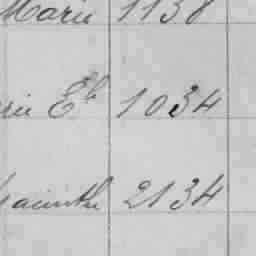 Marie 1138
rie Eh 1034
yacinthe 2134